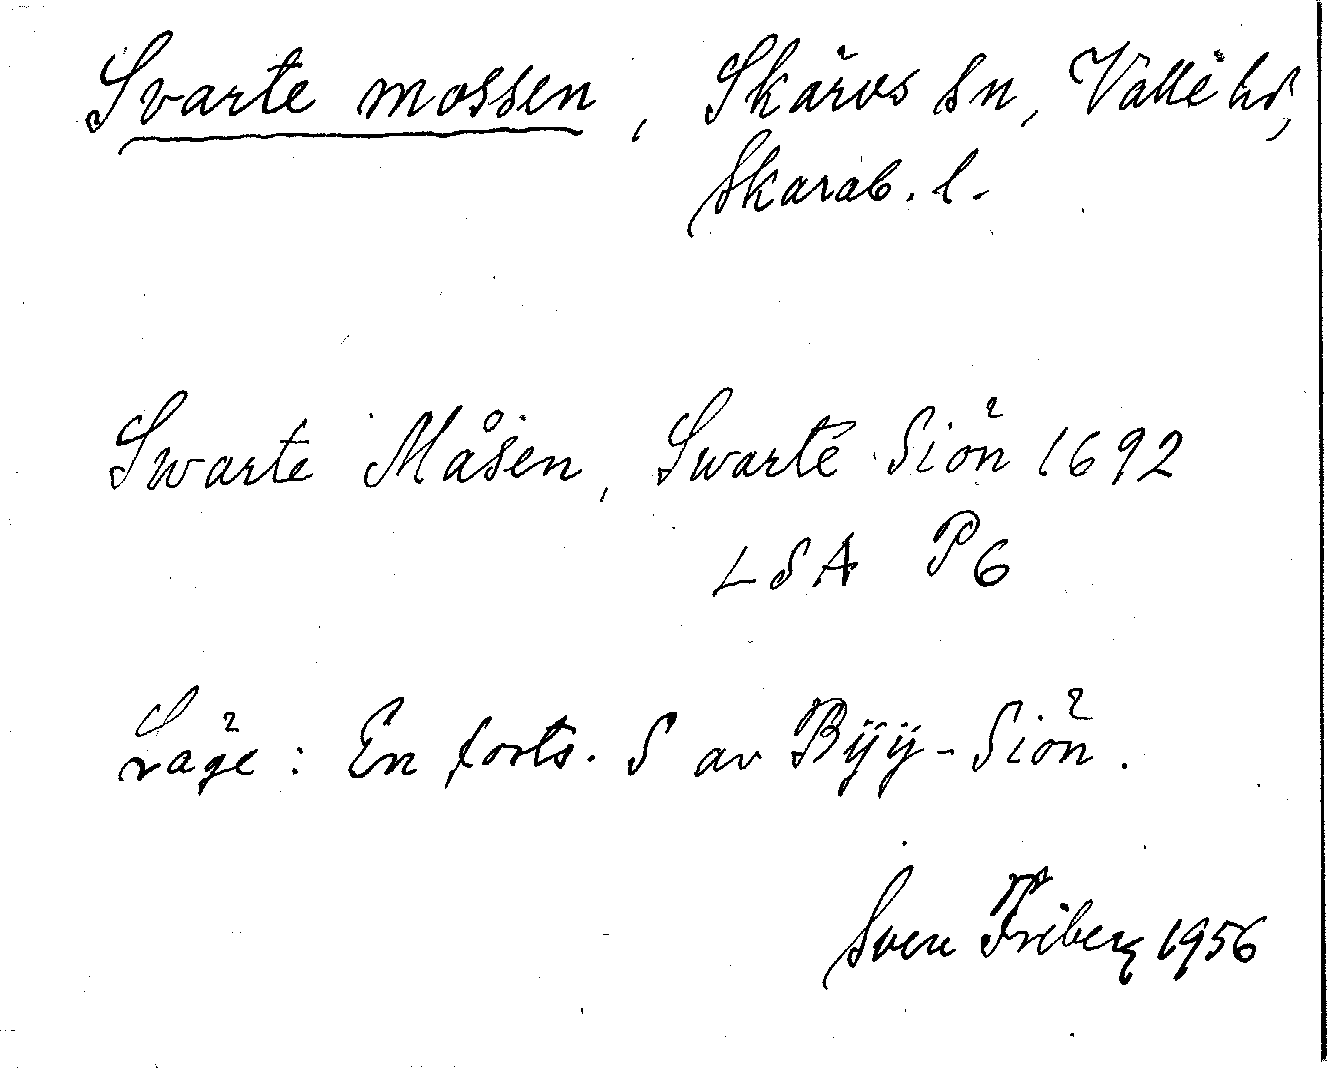 Svarte mossen, Skärvs sn, Valle hd,
Skarab. l.
Swarte Måsen, Swarte Siön 1692
LSA P6
Läge: En forts. S av Bÿÿ-Siön.
Sven Friberg 1956